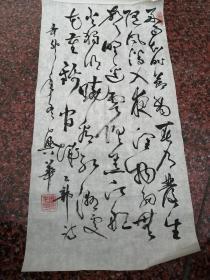 好雨知時節當春乃發生
隨風潛入夜潤物細無
聲野徑雲俱黑江船
火獨明曉看紅濕處
花重錦官城 杜甫詩
興華